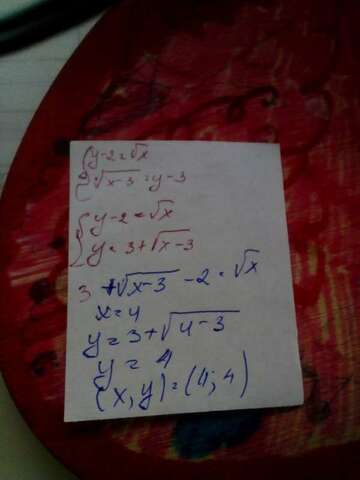 {y-2=√x
{√x-3=y-3
{y-2=√x
{y=3+√x-3
3+√x-3-2=√x
x=4
y=3+√4-3
y=4
(x,y)=(4;4)